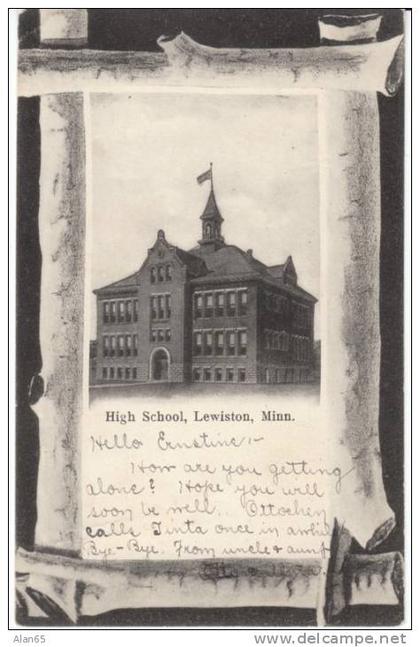 High School, Lewiston, Minn.
Hello Ernstine:-
How are you getting
alone? Hope you will
soon be well. Ottochen
calls Tinta once in awhile
Bye-Bye. From uncle & aunt
Alan65
www.delcampe.net